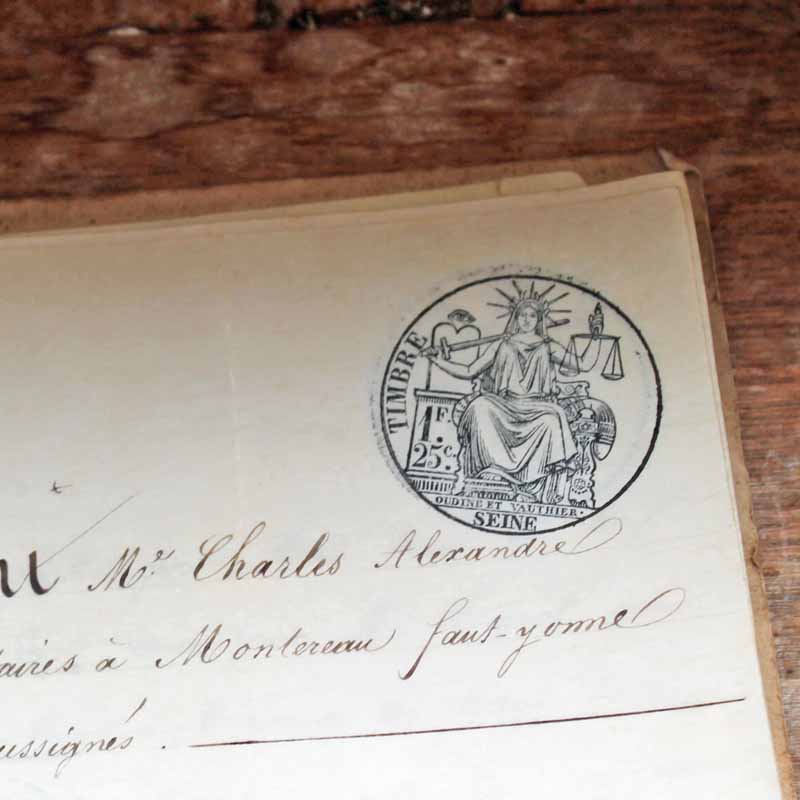 TIMBRE
1F.
25c.
OUDINÉ ET VAUTHIER.
SEINE
Me. Charles Alexandre
taires à Montereau faut-yonne
ussignés.